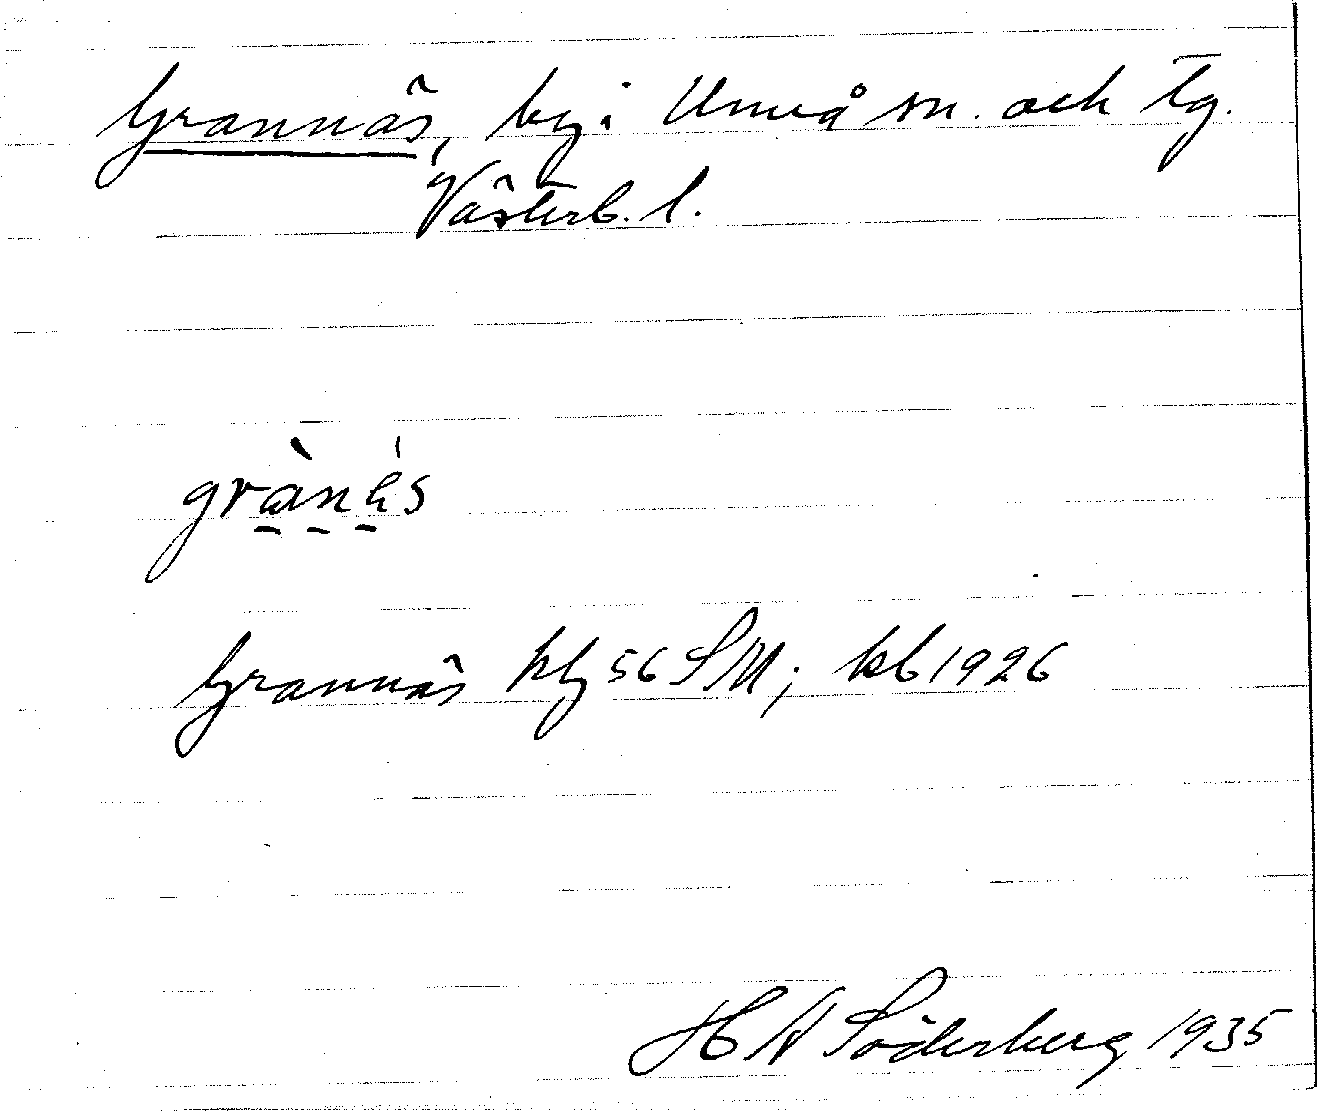 Grannäs, by i Umeå sn. och tg.
Västerb. l.
grànä́s
Grannäs kbl 56 SM; kb 1926
H A Söderberg 1935